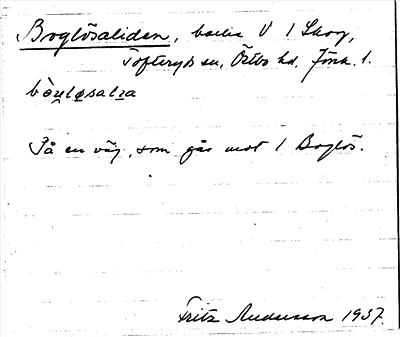 Boglösaliden, backe V 1 Skog,
Tofteryds sn, Östbo hd, Jönk. l.
På en väg, som går mot 1 Boglös.
Fritz Andersson 1937.